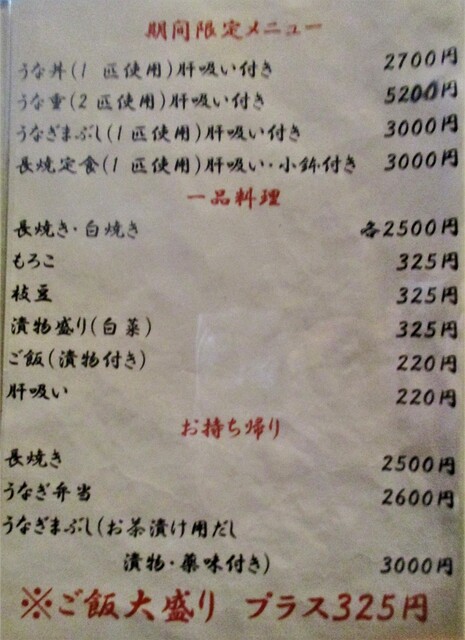 期間限定メニュー
うな丼(1匹使用)肝吸い付き 2700円
うな重(2匹使用)肝吸い付き 5200円
うなぎまぶし(1匹使用)肝吸い付き 3000円
長焼定食(1匹使用)肝吸い・小鉢付き 3000円
一品料理
長焼き・白焼き 各2500円
もろこ 325円
枝豆 325円
漬物盛り(白菜) 325円
ご飯(漬物付き) 220円
肝吸い 220円
お持ち帰り
長焼き 2500円
うなぎ弁当 2600円
うなぎまぶし(お茶漬け用だし
漬物・薬味付き) 3000円
※ご飯大盛り プラス325円